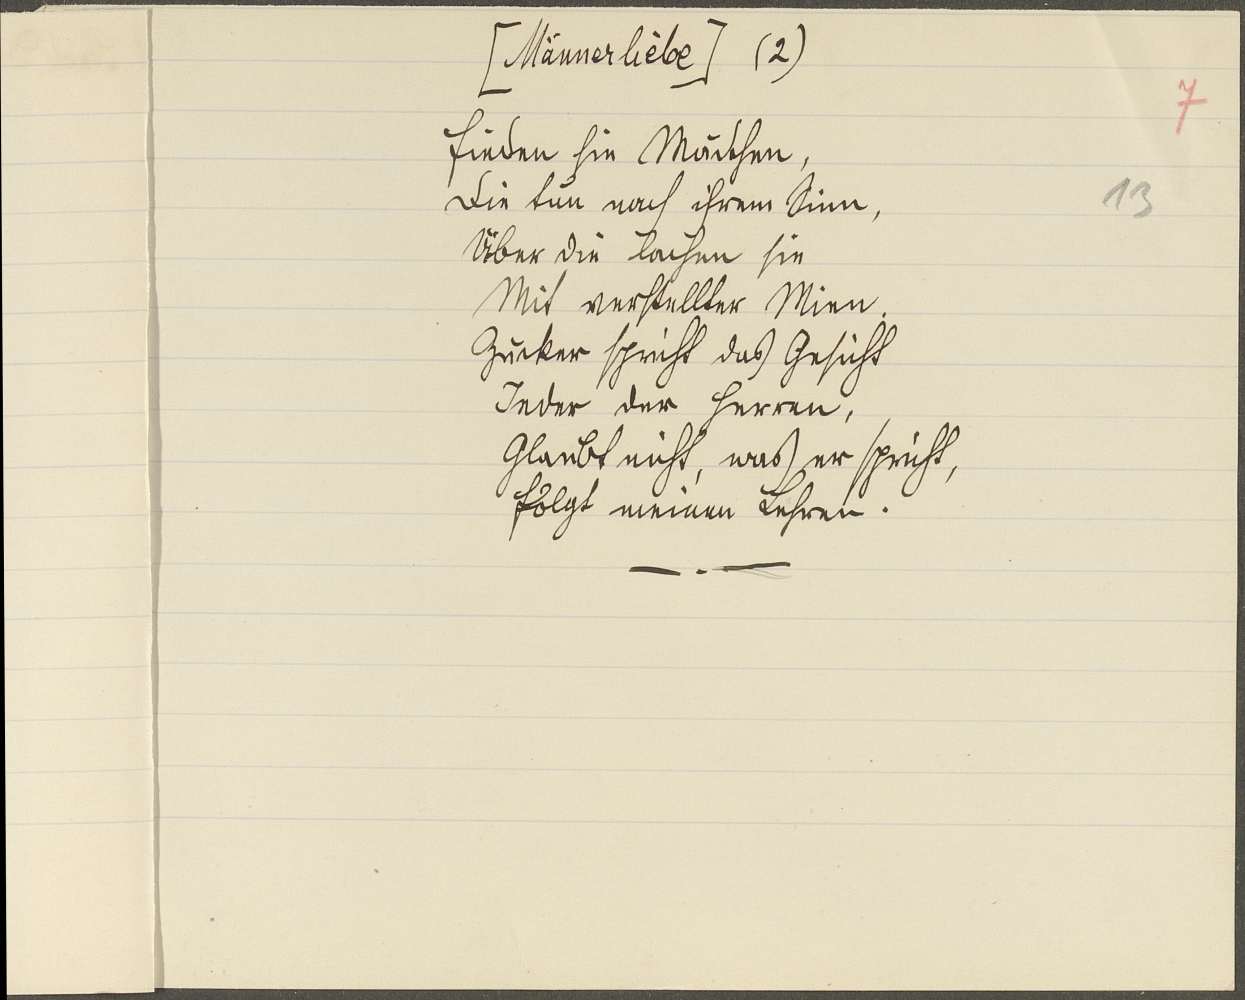 [Männerliebe] (2)
7
Finden sie Mädchen,
13
Die tun nach ihrem Sinn,
Über die lachen sie
Mit verstellter Mien.
Zucker spricht das Gesicht
Jeder der Herren,
Glaubt nicht, was er spricht,
Folgt meinen Lehren.